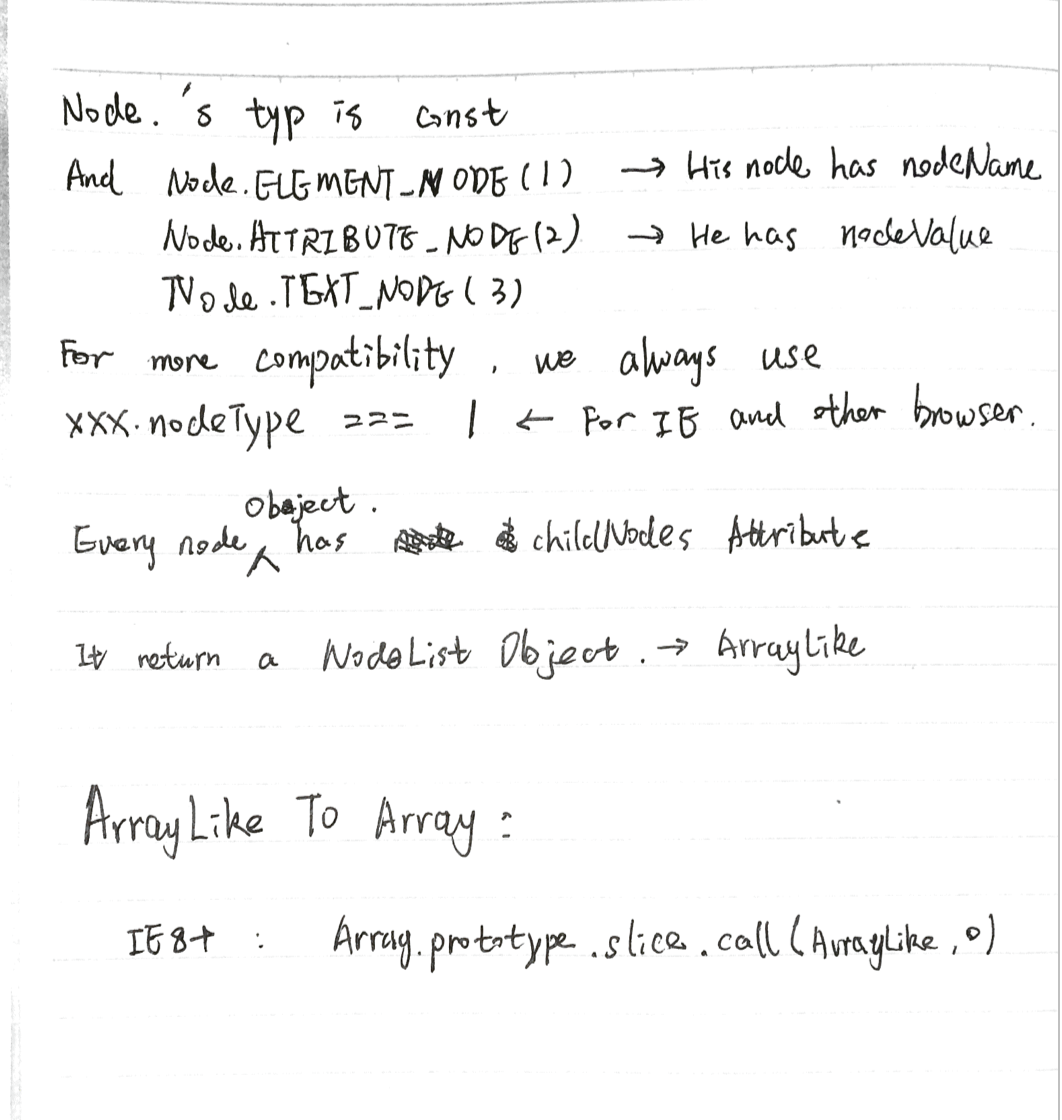 Node.'s typ is const
And Node.ELEMENT_NODE(1) → His node has nodeName
Node.ATTRIBUTE_NODE(2) → He has nodeValue
Node.TEXT_NODE(3)
For more compatibility, we always use
xxx.nodeType === 1 ← For IE and other browser.
Object.
Every node ^ has childNodes Attribute
It return a NodeList Object. → ArrayLike
ArrayLike To Array:
IE8+ : Array.prototype.slice.call(ArrayLike,0)